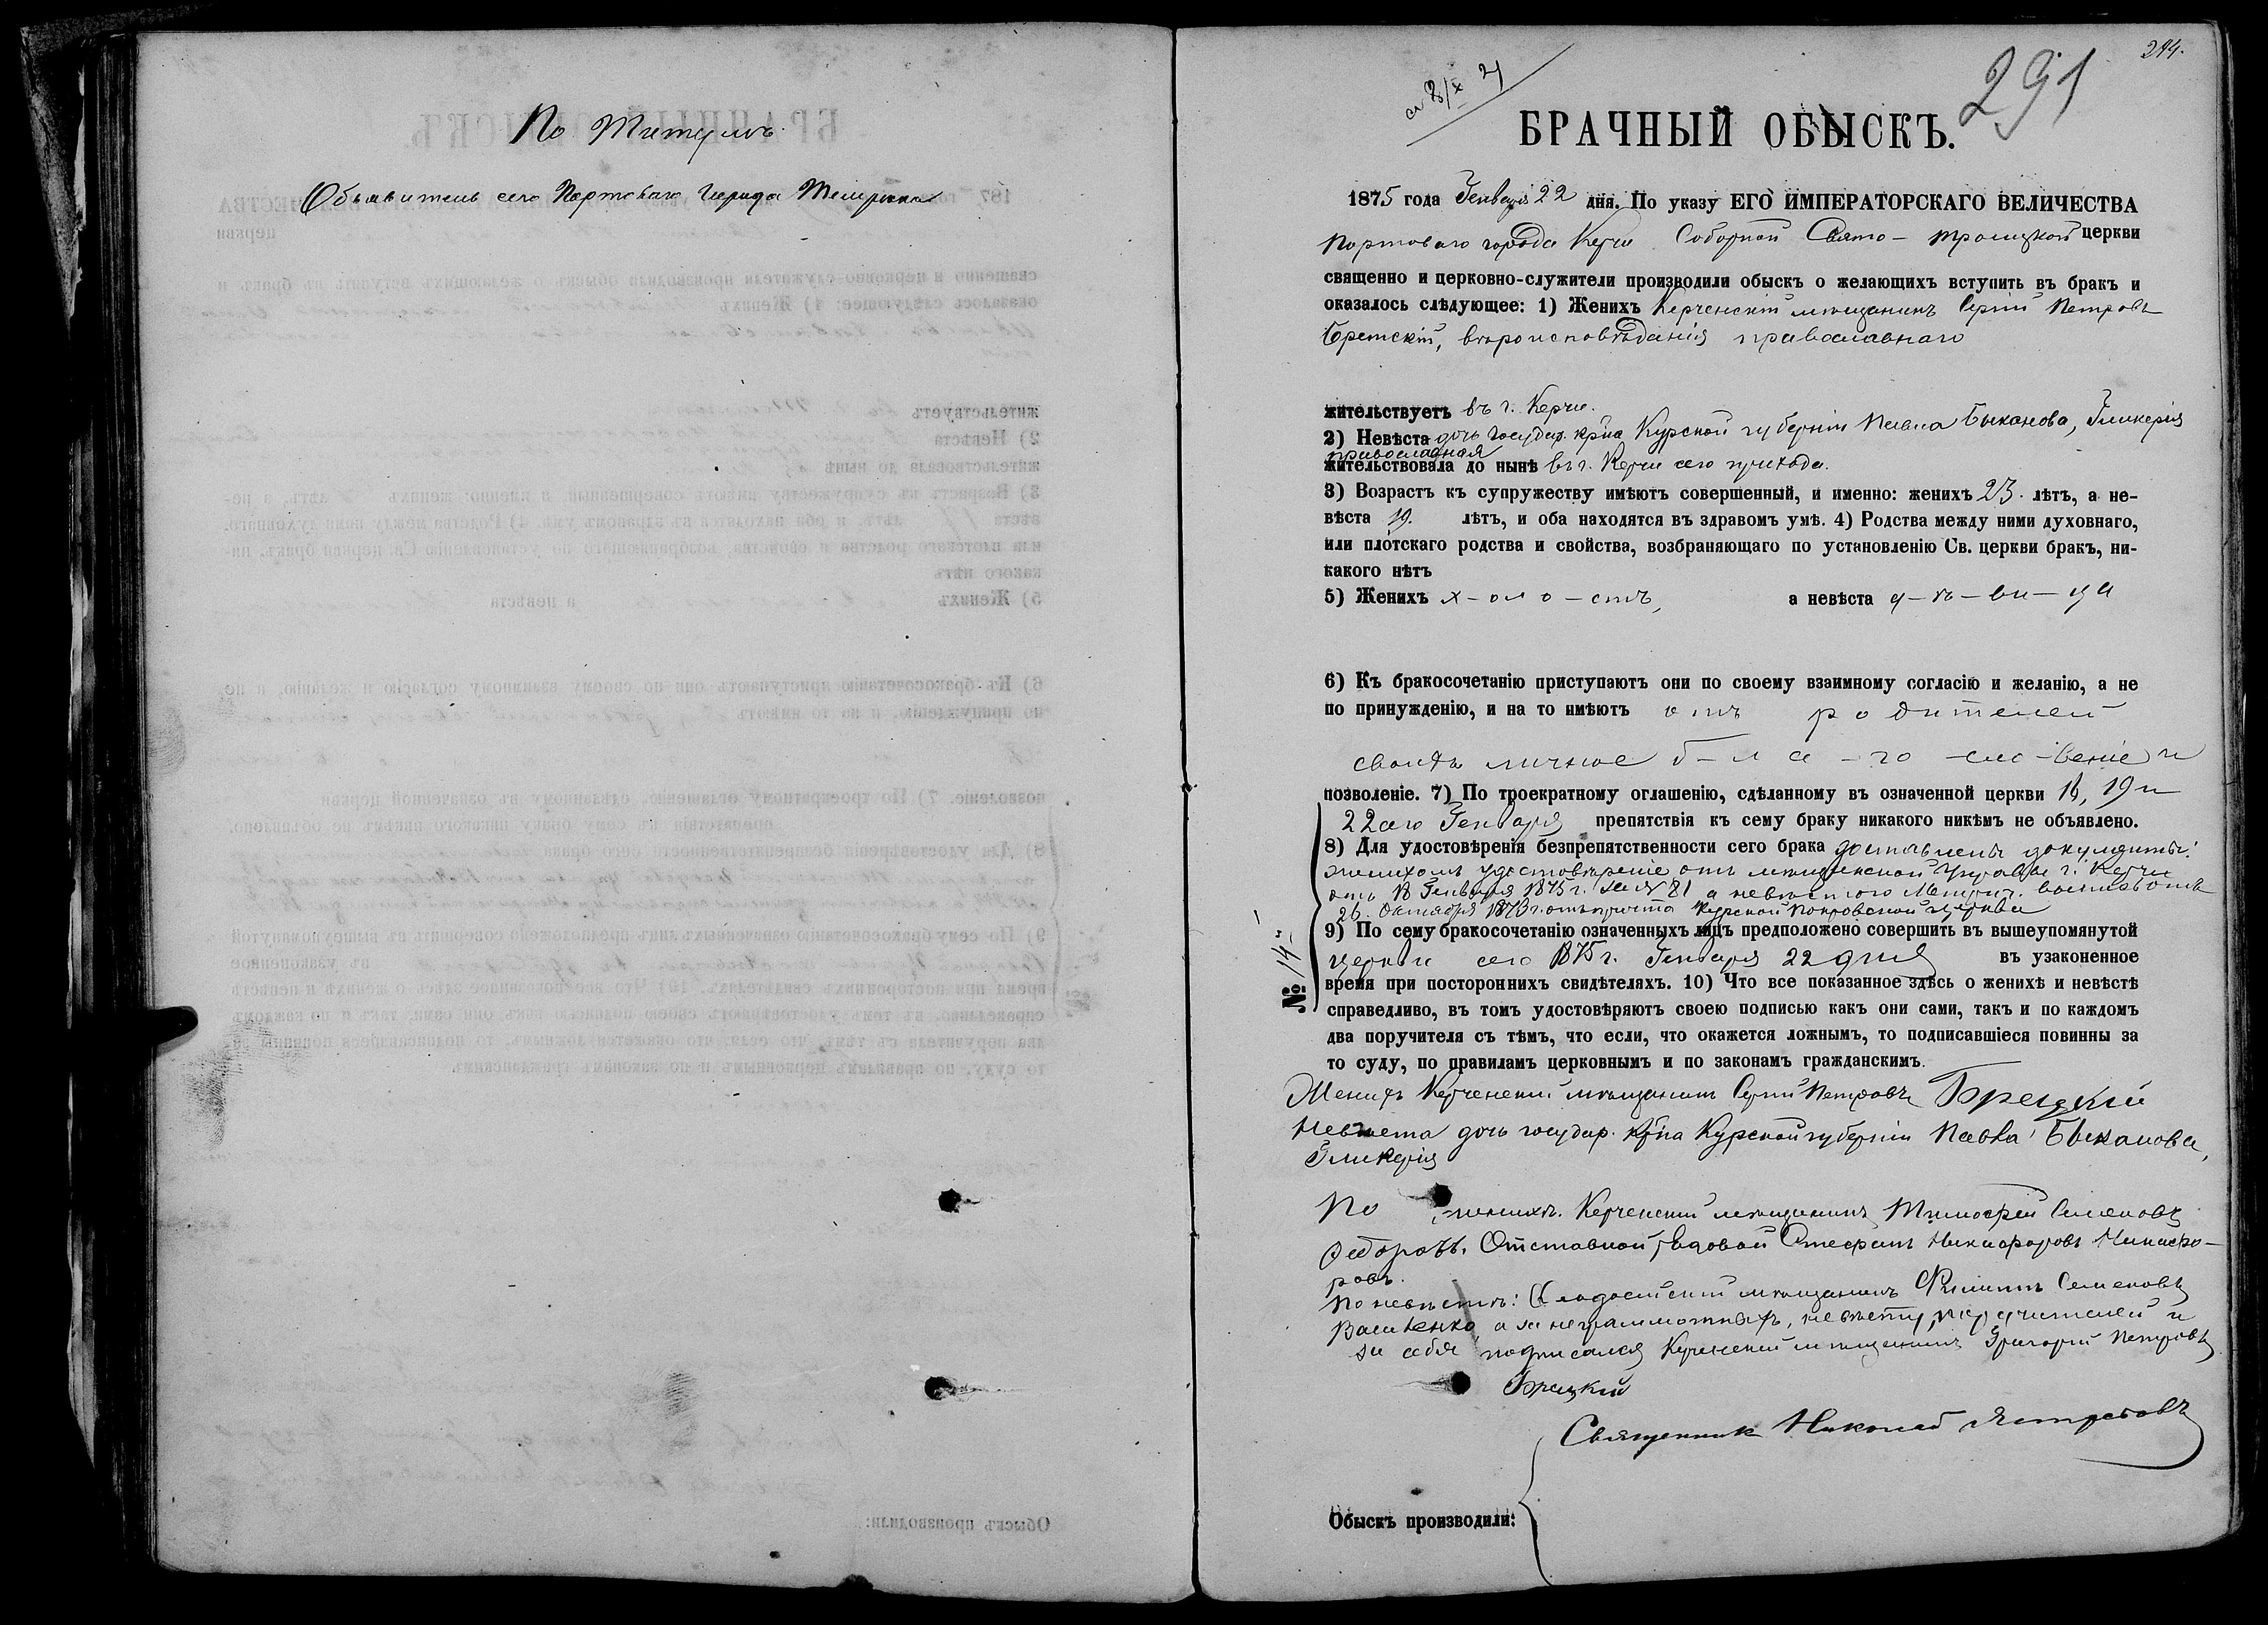 По Титулѣ
Объявитель сего Портоваго города
294.
291
БРАЧНЫЙ ОБЫСКЪ.
1875 года Генваря 22 дня. По указу ЕГО ИМПЕРАТОРСКАГО ВЕЛИЧЕСТВА
портоваго города Керчи Соборной Свято-Троицкой церкви
священно и церковно-служители производили обыскъ о желающихъ вступить въ бракъ и
оказалось слѣдующее: 1) Женихъ Керченскій мѣщанинъ Сергій Петровъ
Бретскій, вѣроисповѣданія православнаго
жительствуетъ въ г. Керчи.
2) Невѣста дочь государ. кр–на Курской губерніи Павла Быканова, Гликерія
православная
жительствовала до нынѣ въ г. Керчи сего прихода.
3) Возрастъ къ супружеству имѣютъ совершенный, и именно: женихъ 23. лѣтъ, а не-
вѣста 19. лѣтъ, и оба находятся въ здравомъ умѣ. 4) Родства между ними духовнаго,
или плотскаго родства и свойства, возбраняющаго по установленію Св. церкви бракъ, ни-
какого нѣтъ
5) Женихъ х-оло-стъ, а невѣста д-ѣ-ви-ца
6) Къ бракосочетанію приступаютъ они по своему взаимному согласію и желанію, а не
по принужденію, и на то имѣютъ отъ родителей
своихъ личное б-л а-го-сло-веніе и
позволеніе. 7) По троекратному оглашенію, сдѣланному въ означенной церкви 18, 19 и
22аго Генваря препятствія къ сему браку никакого никѣмъ не объявлено.
8) Для удостовѣренія безпрепятственности сего брака доставлены документы:
женихомъ удостовѣреніе отъ мѣщанской Управы г. Керчи
отъ 18 Генваря 1875 г. за № 81 а невѣстою Метрич. отъ
26 Октября 1873 г. отъ причта Курской Покровской церкви
9) По сему бракосочетанію означенныхъ лицъ предположено совершить въ вышеупомянутой
церкви сего 1875 г. Генваря 22 дня въ узаконенное
№ 14
время при постороннихъ свидѣтеляхъ. 10) Что все показанное здѣсь о женихѣ и невѣстѣ
справедливо, въ томъ удостовѣряютъ своею подписью какъ они сами, такъ и по каждомъ
два поручителя съ тѣмъ, что если, что окажется ложнымъ, то подписавшіеся повинны за
то суду, по правиламъ церковнымъ и по законамъ гражданскимъ.
Женихъ Керченскій мѣщанинъ Сергій Петровъ Брецкій
Невѣста дочь государ. кр–на Курской губерніи Павла Быканова,
Гликерія
По женихѣ. Керченскій мѣщанинъ Тимофей Семеновъ
Федоровъ. Отставной рядовой Стефанъ Никифоровъ Никифо-
ровъ.
По невѣстѣ: мѣщанинъ Филиппъ Семеновъ
Василенко, а за неграмотныхъ, невѣсту, поручителей и
за себя подписался Керченскій мѣщанинъ Григорій Петровъ
Брецкій
Священникъ Николай Ястребовъ
Обыскъ производили: